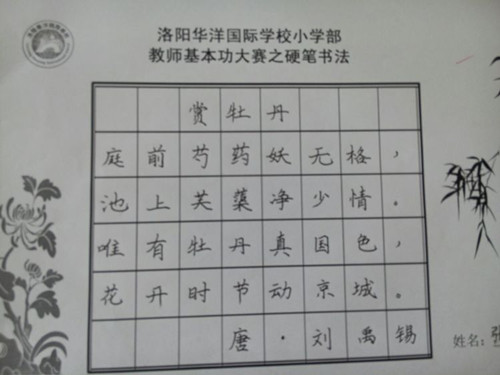 洛阳华洋国际学校小学部
教师基本功大赛之硬笔书法
赏牡丹
庭前芍药妖无格,
池上芙蕖净少情。
唯有牡丹真国色,
花开时节动京城。
唐·刘禹锡
姓名: